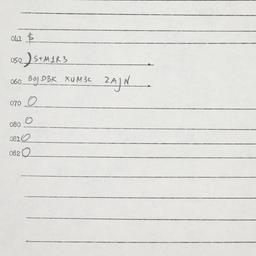 041 $
050 )S+M1R3
060 BOJD3K XUM3C ZAJN
070 0
080 0
081 0
082 0